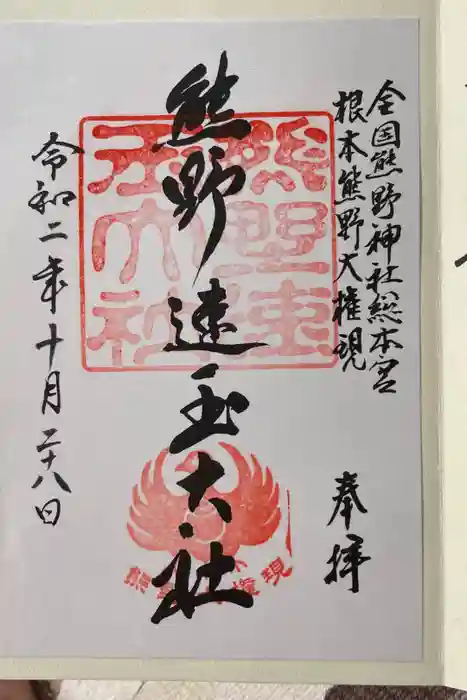 全国熊野神社総本宮
根本熊野大権現
奉拝
熊野速玉大社
熊野速玉大社
令和二年十月二十八日